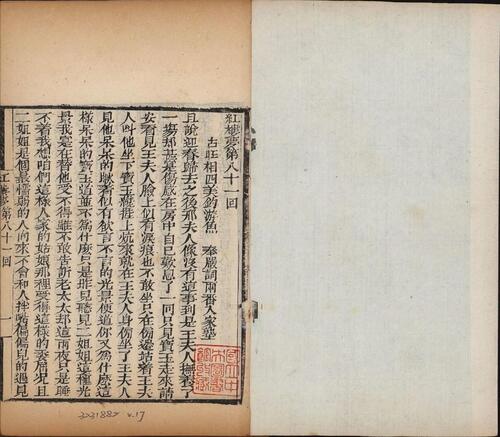 紅樓夢第八十一回
占旺相四美釣游魚　奉嚴詞兩番入家塾
且說迎春歸去之後邢夫人像沒有這事到是王夫人撫養了
一場却甚實傷感在房中自己歎息了一回只見寶玉走來請
安看見王夫人臉上似有淚痕也不敢坐只在傍邊站着王夫
人呌他坐下寶玉纔捱上炕來就在王夫人身傍坐了王夫人
見他呆呆的瞅着似有欲言不言的光景便道你又為什麼這
樣呆呆的寶玉道並不為什麼只是昨兒聽見二姐姐這種光
景我實在替他受不得雖不敢告訴老太太却這兩夜只是睡
不着我想咱們這樣人家的姑娘那裡受得這樣的委屈况且
二姐姐是個最懦弱的人向來不會和人拌嘴偏偏兒的遇見
紅樓夢第八十一回
一
3231882 v.17